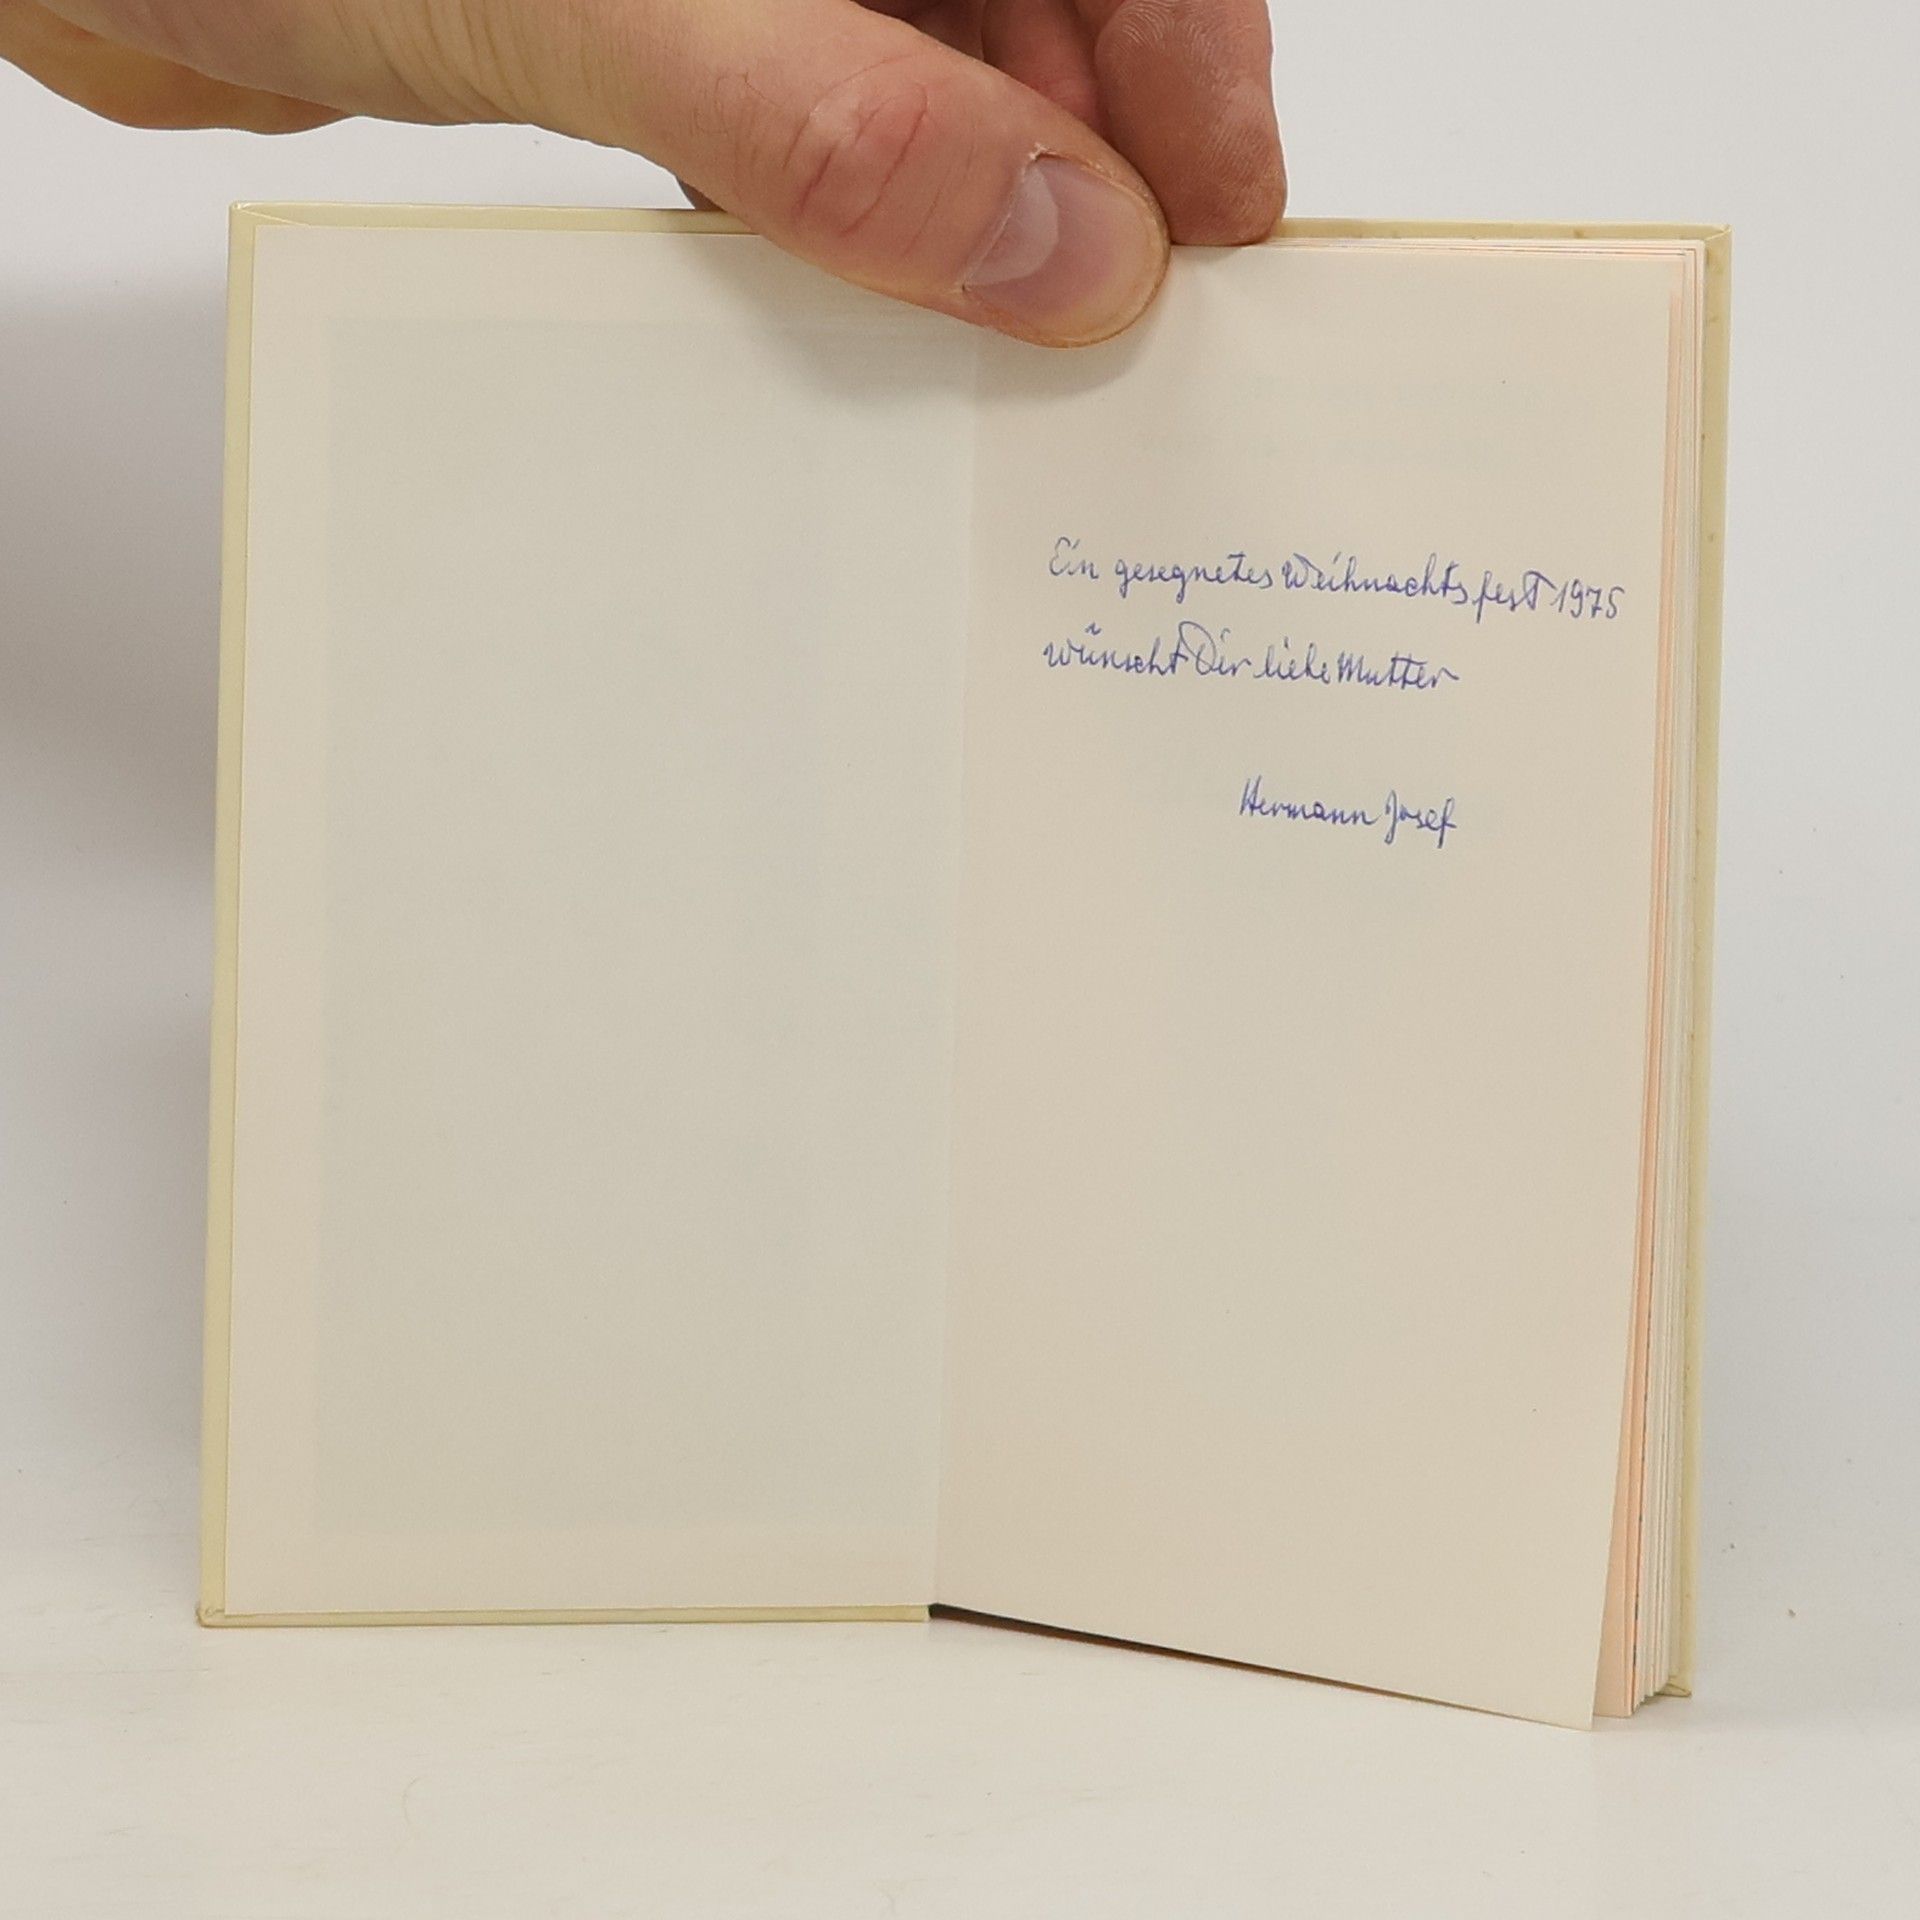 Ein gesegnetes Weihnachtsfest 1975
wünscht Dir liebe Mutter
Hermann Josef